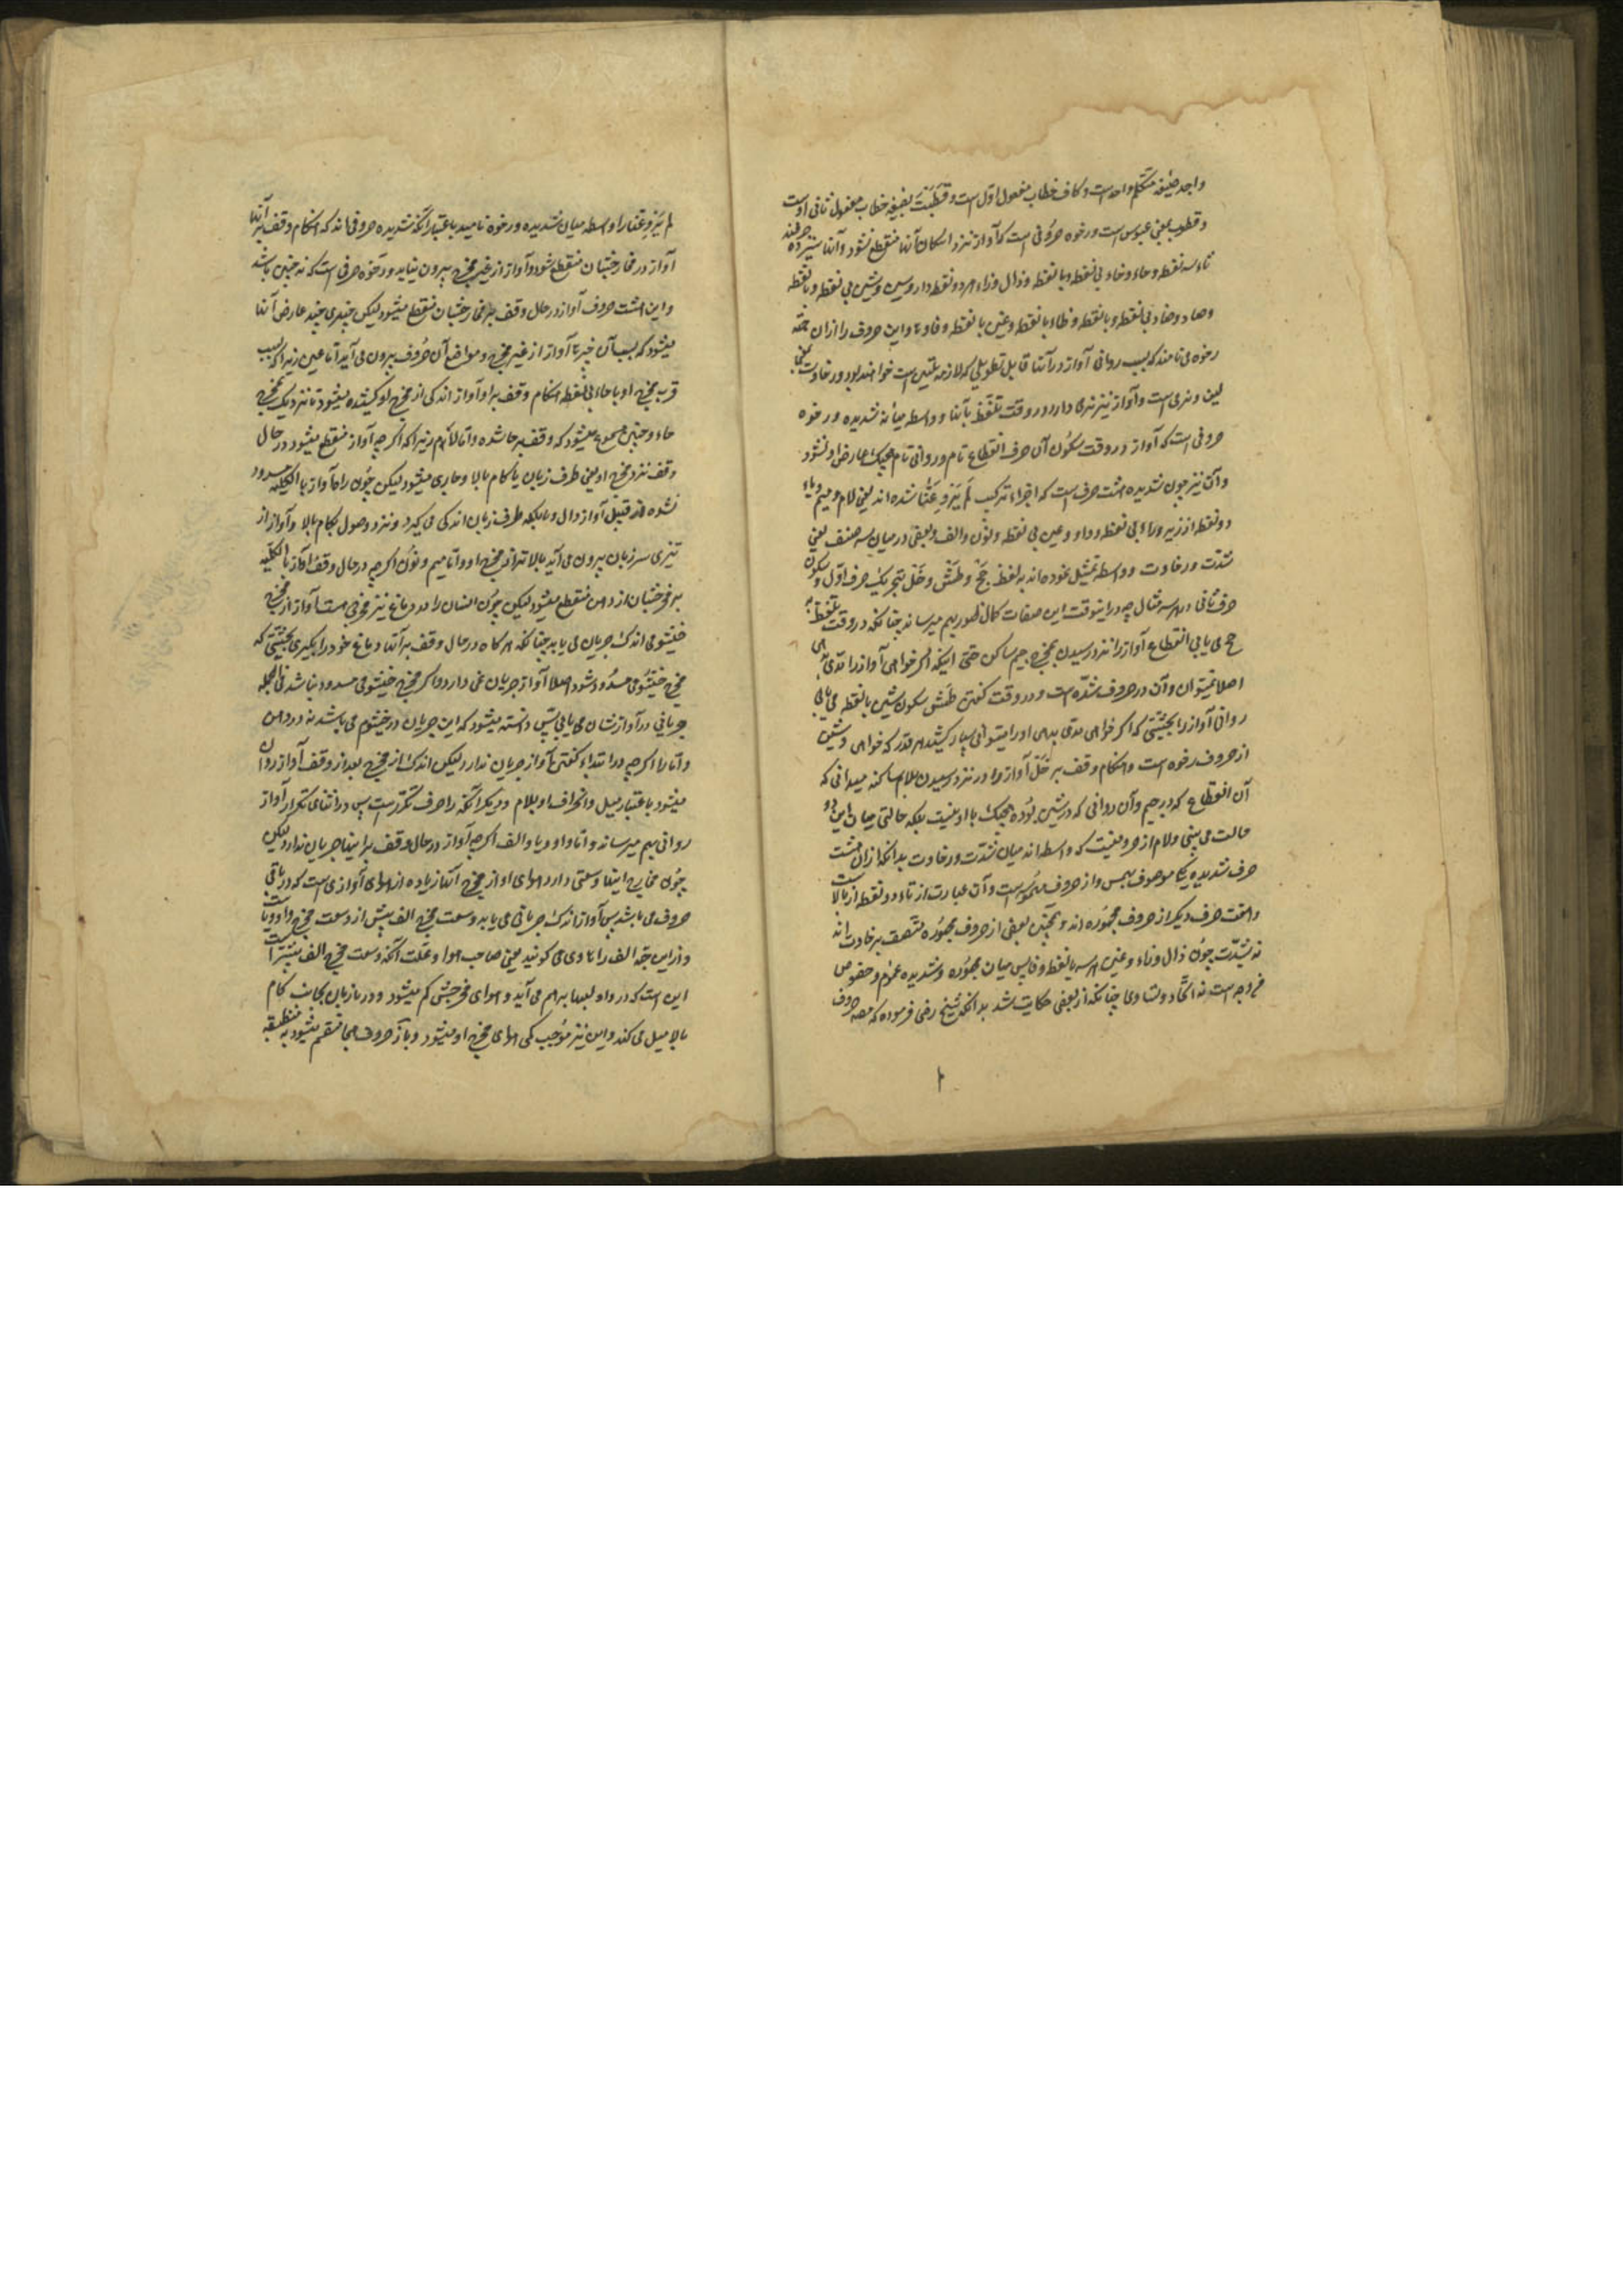 واجد صیغه متکلم واحد است و کاف خطاب مفعول اول است و قطبت بصیغه خطاب مفعول ثانی اوست
و قطوب بمعنی عبوس است و رخوه حروفی است که آواز نزد اسکان آنها منقطع نشود و آنها سیزده حرفند
ثاء سه نقطه و حاء و خاء بی نقطه و با نقطه و ذال و زاء هر دو نقطه دار و سین و شین بی نقطه و با نقطه
و صاد و ضاد بی نقطه و با نقطه و ظاء با نقطه و غین با نقطه و فا و ها و این حروف را ازان جهة
رخوه می نامند که بسبب روانی آواز در آنها قابل تطویلی که لازمه تلیین است خواهند بود و رخاوت بمعنی
لین و نرمی است و آواز نیز نرمی دارد در وقت تلفظ بآنها و واسطه میانه شدیده و رخوه
حروفی است که آواز در وقت سکون آن حرف انقطاع تام و روانی تام هیچیک عارض او نشود
و آن نیز چون شدیده هشت حرف است که اجزاء ترکیب لَم یَرْوِ عَنّا شده اند یعنی لام و میم و یاء
دو نقطه از زیر و راء بی نقطه و واو و عین بی نقطه و نون و الف و بعضی در میان سه صنف یعنی
شدت و رخاوت و واسطه تمثیل نموده اند به لفظ حَجّ و طَشّ و خَلّ بتحریک حرف اول و سکون
حرف ثانی در هر سه مثال چه در اینوقت این صفات کمال ظهور بهم میرساند چنانکه در وقت تلفظ به
حج می یابی انقطاع آواز را نزد رسیدن بمخرج جیم ساکن حتی اینکه اگر خواهی آواز را مدی بدهی
اصلا نمیتوان و آن در حروف شده است و در وقت گفتن طش بسکون شین با نقطه می یابی
روانی آواز را بحیثیتی که اگر خواهی مدی بدهی او را میتوانی بسیار کشید هر قدر که خواهی و شین
از حروف رخوه است و هنگام وقف بر خَلّ آواز را در نزد رسیدن بلام ساکنه میدانی که
آن انقطاع که در جیم و آن روانی که در شین بوده هیچیک با او نیست بلکه حالتی میان این دو
حالت می بینی و لام از حروفیست که واسطه اند میان شدت و رخاوت بدانکه ازان هشت
حرف شدیده یکی موصوف بهمس و از حروف مهموسه است و آن عبارت از تاء دو نقطه از بالا است
و هفت حرف دیگر از حروف مجهوره اند و همچنین بعضی از حروف مجهوره متصف برخاوت اند
نه بشدت چون ذال و زاء و غین هر سه با نقطه و ظا پس میان مجهوره و شدیده عموم و خصوص
من وجه است نه اتحاد و تساوی چنانکه از بعضی حکایت شد بدانکه شیخ رضی فرموده که مصه حروف
لم یرو عنا را واسطه میان شدیده و رخوه نامید باعتبار آنکه شدیده حروفی اند که هنگام وقف بر آنها
آواز در مخارجشان منقطع شود و آواز از غیر مخرج بیرون نیاید و رخوه حرفی است که نه چنین باشد
و این هشت حروف آواز در حال وقف بر مخارجشان منقطع میشود لیکن چیزی چند عارض آنها
میشود که بسبب آن چیزها آواز از غیر مخرج و مواضع آن حروف بیرون می آید اما عین زیرا که بسبب
قرب مخرج او با حاء بی نقطه هنگام وقف بر او آواز اندکی از مخرج او کشیده میشود تا نزدیک بمخرج
حاء و چنین مسموع میشود که وقف بر حا شده و اما لام زیرا که اگر چه آواز منقطع میشود در حال
وقف نزد مخرج او یعنی طرف زبان با کام بالا و جاری میشود لیکن چون راه آواز بالکلیه مسدود
نشده از قبیل آواز دال و تا بلکه طرف زبان اندکی می گیرد و نزد وصول بکام بالا و آواز از
تیزی سر زبان بیرون می آید بالاتر از مخرج او و اما میم و نون اگر چه در حال وقف آواز بالکلیه
بر مخرجشان از دهن منقطع میشود لیکن چون انسان را در دماغ نیز مخرجی هست آواز از مخرج
خیشومی اندک جریان می یابد چنانکه هر گاه در حال وقف بر آنها دماغ خود را بگیری بحیثیتی که
مخرج خیشومی مسدود شود اصلا آواز جریان نمی دارد و اگر مخرج خیشومی مسدود نباشد فی الجمله
جریانی در آوازشان می یابی پس دانسته میشود که این جریان در خیشوم می باشد نه در دهن
و اما را اگر چه در ابتداء گفتن آواز جریان ندارد لیکن اندک از مخرج بعد از وقف آواز روان
میشود باعتبار میل و انحراف او بلام و دیگر آنکه را حرف مکرر است پس در اثنای تکرار آواز
روانی بهم میرساند و اما واو و یا و الف اگر چه آواز در حال وقف بر اینها جریان ندارد لیکن
چون مخارج اینها وسعتی دارد هوای او از مخرج آنها زیاده از هوای آوازی است که در باقی
حروف می باشد پس آواز اندک جریانی می یابد و وسعت مخرج الف بیش از وسعت مخرج واو و یا است
و از این جهة الف را هاوی می گویند یعنی صاحب هوا و علت آنکه وسعت مخرج الف بیشتر است
این است که در واو لبها بهم می آید و هوای مخرجش کم میشود و در یا زبان بجانب کام
بالا میل می کند و این نیز موجب کمی هوای مخرج او میشود و باز حروف هجا منقسم میشود به منطبقه